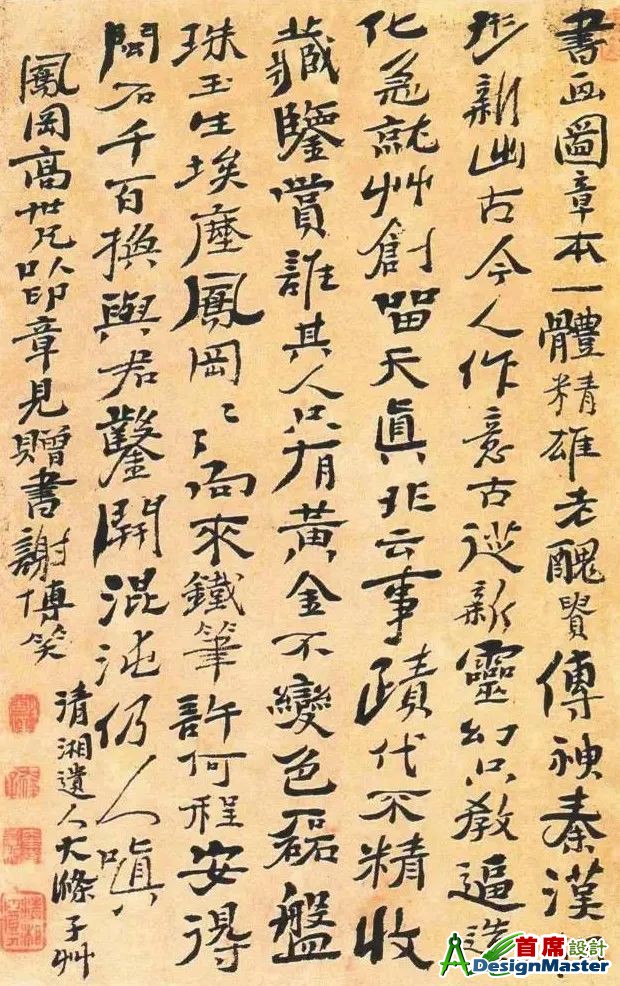 書画圖章本一體精雄老醜貴傳神秦漢
形新出古今人作意古從新靈幻只教逼造
化急就艸創留天真非云事蹟代不精收
藏鑒賞誰其人只有黄金不變色磊盤
珠玉生埃塵鳳岡々々向來鐵筆許何程安得
石千百換與君鑿開混沌仍人嗔
鳳岡高世兄以印章見贈書謝博笑
清湘遺人大滌子艸
首席設計
DesignMaster